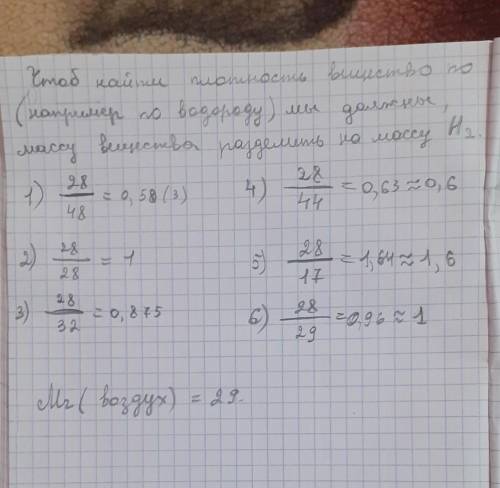 Чтоб найти плотность вещество по
(например по водороду) мы должны,
массу вещества разделить на массу H₂.
1) 28/48 = 0,58(3)
4) 28/44 = 0,63 ≈ 0,6
2) 28/28 = 1
5) 28/17 = 1,64 ≈ 1,6
3) 28/32 = 0,875
6) 28/29 = 0,96 ≈ 1
Mr (воздух) = 29.